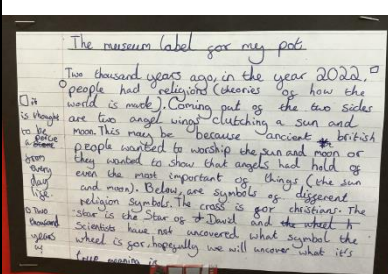 The museum label for my pot.
Two thousand years ago, in the year 2022,
people had religions (theories of how the
world is made). Coming out of the two sides
are two angel wings clutching a sun and
moon. This may be because ancient british
people wanted to worship the sun and moon or
they wanted to show that angels had hold of
even the most important of things (the sun
and moon). Below, are symbols of different
religion symbols. The cross is for christians. The
star is the Star of David and the wheel
Scientists have not uncovered what symbol the
wheel is for, hopefully we will uncover what it's
meaning is
it
is thought
to be
a peice
from
every
day
life.
Two
thousand
years